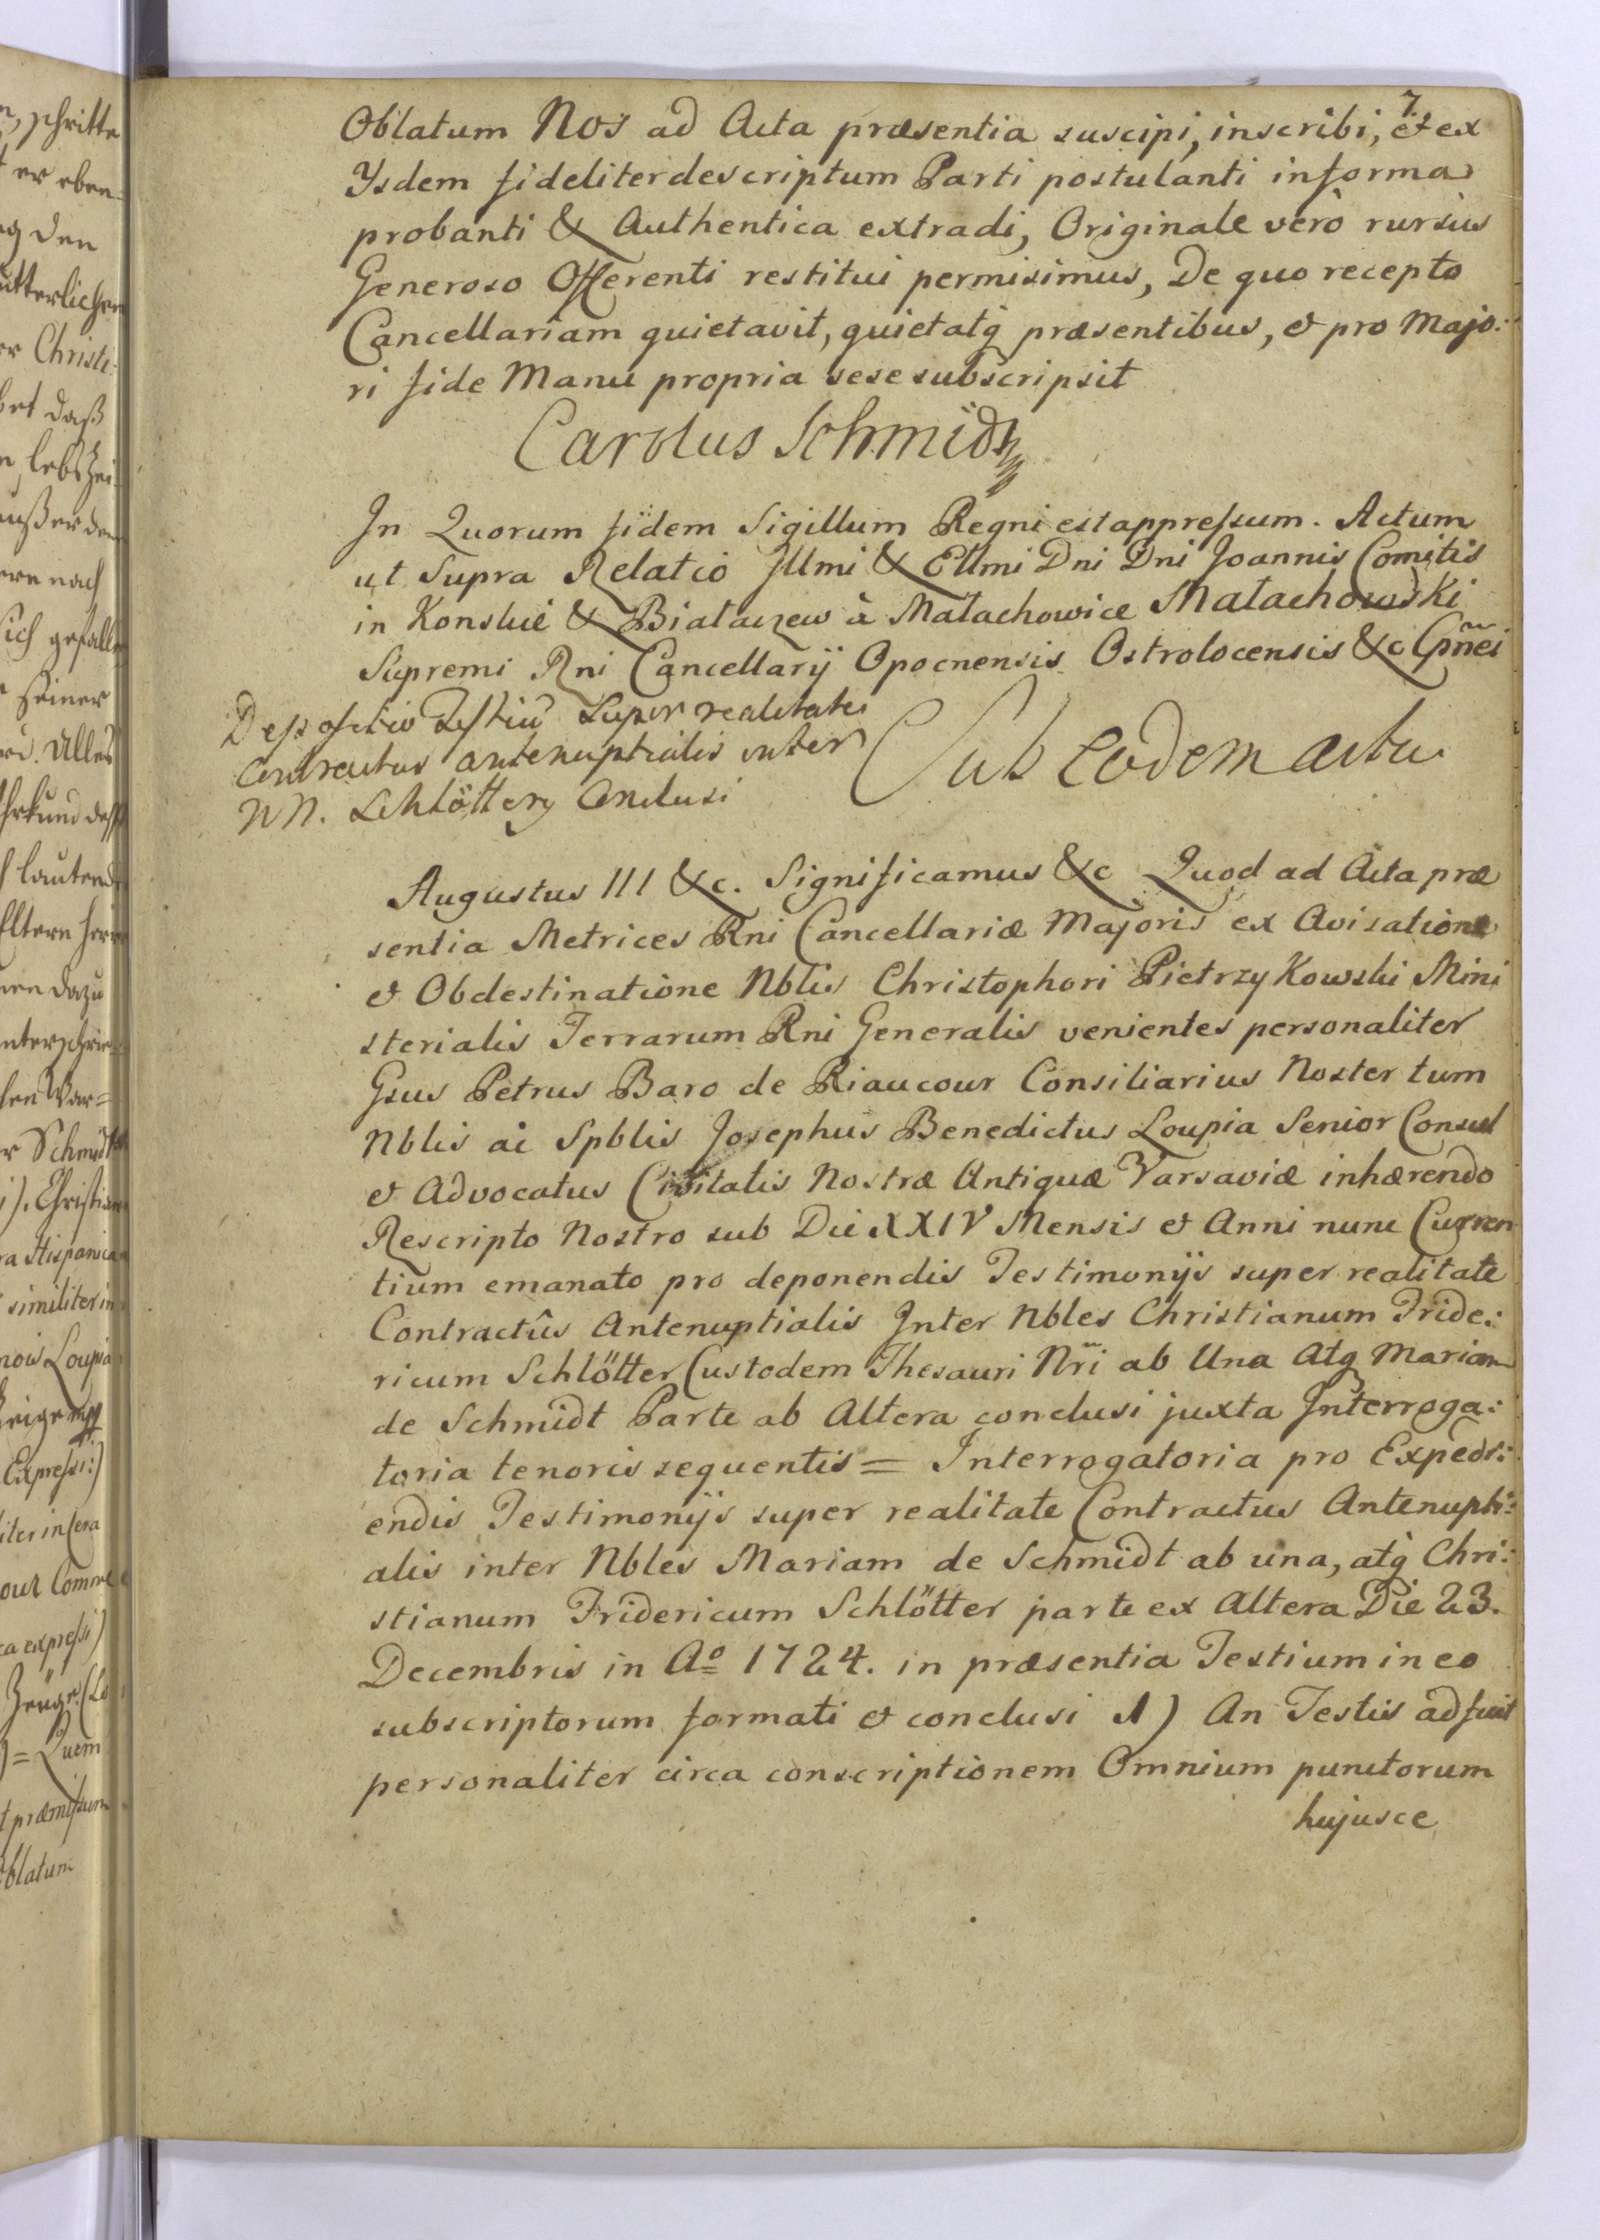 7
Oblatum Nos ad Acta præsentia suscipi, inscribi, et ex
Ysdem fideliter descriptum Parti postulanti in forma
probanti & Authentica extradi, Originale verò rursus
Generoso Offerenti restitui permisimus, De quo recepto
Cancellariam quietavit, quietatq̀ præsentibus, et pro Majo:
ri fide Manu propria sese subscripsit
Carolus Schmidt
In Quorum fidem Sigillum Regni est appressum. Actum
ut Supra Relatio Illmi & Ellmi Dni Dni Joannis Comitis
in Konskie & Białaczew à Małachowice Małachowski
Supremi Rni Cancellarij Opocnensis Ostrolocensis &c Cpñei
Depositio Testiū Super realitate
Contractus antenuptialis inter
NN. Schlötter Conclusi
Sub eodem actu
Augustus III &c. Significamus &c Quod ad Acta præ
sentia Metrices Rni Cancellariæ Majoris ex Avisatione
et Obdestinatione Nblis Christophori Pietrzykowski Mini
sterialis Terrarum Rni Generalis venientes personaliter
Gsus Petrus Baro de Riaucour Consiliarius Noster tum
Nblis ac Spblis Josephus Benedictus Loupia Senior Consul
et Advocatus Civitatis Nostræ Antiquæ Varsaviæ inhærendo
Rescripto Nostro sub Die XXIV Mensis et Anni nunc Curren
tium emanato pro deponendis Testimonijs super realitate
Contractûs Antenuptialis Inter Nbles Christianum Fride:
ricum Schlötter Custodem Thesauri Nr̃i ab Una Atq Mariam
de Schmidt Parte ab Altera conclusi juxta Interroga:
toria tenoris sequentis = Interrogatoria pro Expedi:
endis Testimonijs super realitate Contractus Antenupti:
alis inter Nbles Mariam de Schmidt ab una, atq̀ Chri:
stianum Fridericum Schlötter parte ex Altera Die 23.
Decembris in Aº 1724. in præsentia Testium in eo
subscriptorum formati et conclusi 1) An Testis adfuit
personaliter circa conscriptionem Omnium punctorum
hujusce